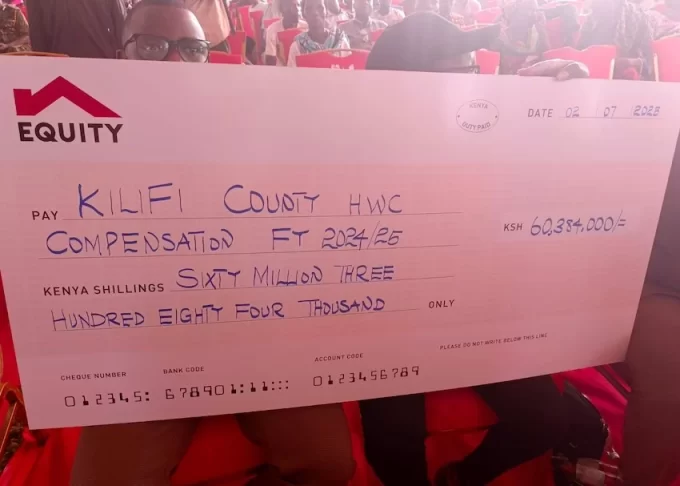 EQUITY
KENYA
DUTY PAID
DATE 02 07 2025
PAY KILIFI COUNTY HWC
COMPENSATION FT 2024/25
KSH 60,384,000/=
KENYA SHILLINGS SIXTY MILLION THREE
HUNDRED EIGHTY FOUR THOUSAND ONLY
PLEASE DO NOT WRITE BELOW THIS LINE
CHEQUE NUMBER BANK CODE ACCOUNT CODE
012345: 678901:11::: 0123456789